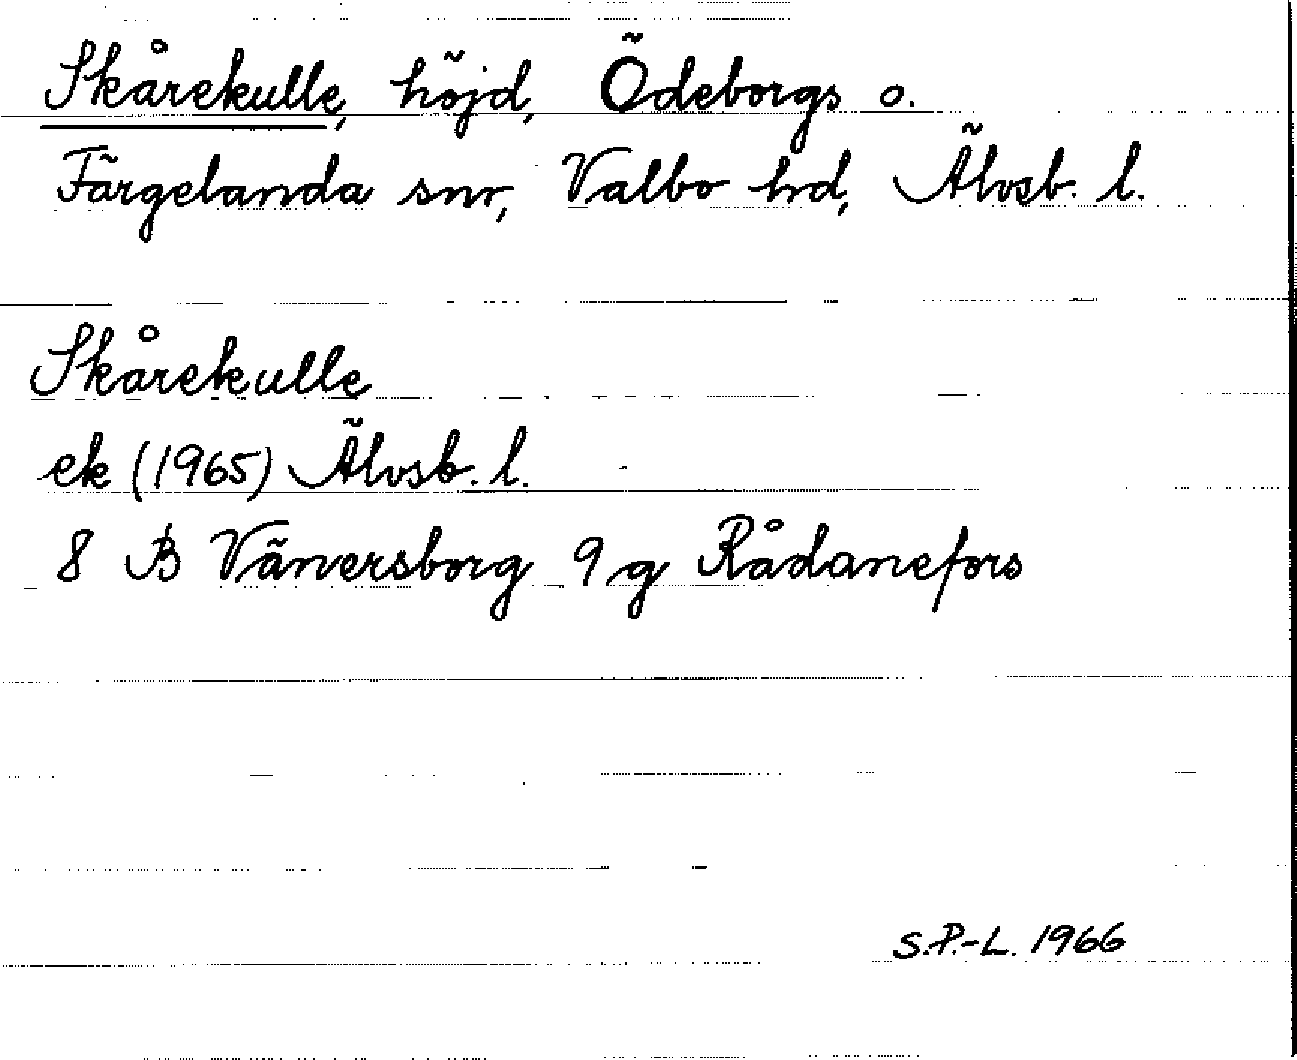 Skårekulle, höjd, Ödeborgs o.
Färgelanda snr, Valbo hd, Älvsb. l.
Skårekulle
ek (1965) Älvsb. l.
8 B Vänersborg 9 g Rådanefors
S.P.-L. 1966